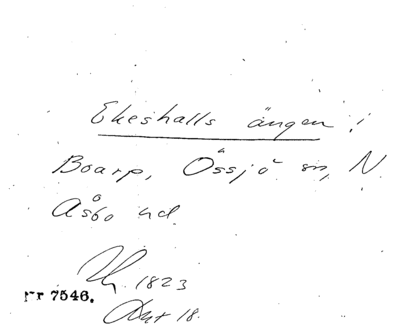 Ekeshalls ängen!
Boarp, Össjö sn, N.
Åsbo hd.
1823
nr 7546.
18.